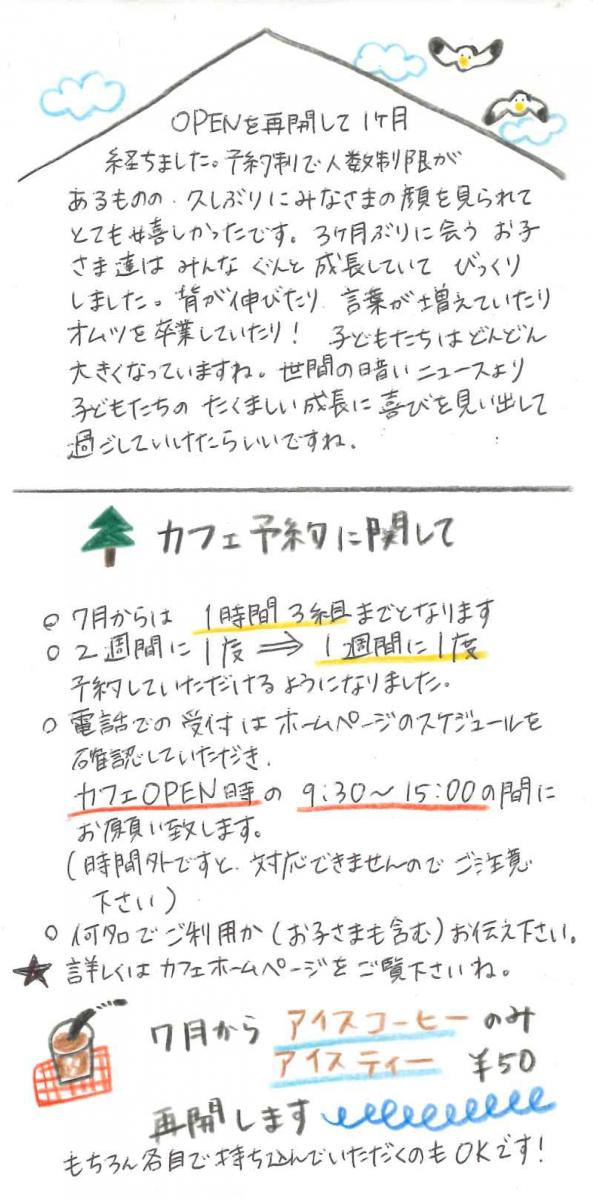 OPENを再開して1ヶ月
経ちました。予約制で人数制限が
あるものの 久しぶりにみなさまの顔を見られて
とても嬉しかったです。3ヶ月ぶりに会う お子
さま達は みんな ぐんと 成長していて びっくり
しました。背が伸びたり 言葉が増えていたり
オムツを卒業していたり! 子どもたちはどんどん
大きくなっていますね。世間の暗いニュースより
子どもたちの たくましい成長に喜びを見い出して
過ごしていけたらいいですね.
カフェ予約に関して
○ 7月からは 1時間3組までとなります
○ 2週間に1度 ⇒ 1週間に1度
予約していただけるようになりました。
○ 電話での受付はホームページのスケジュールを
確認していただき.
カフェOPEN時の 9:30〜15:00の間に
お願い致します。
(時間外ですと、対応できませんのでご注意
下さい)
○ 何名でご利用か(お子さまも含む)お伝え下さい。
★ 詳しくはカフェホームページをご覧下さいね。
7月から アイスコーヒー のみ
アイスティー ¥50
再開します
もちろん各自で持ち込んでいただくのもOKです!